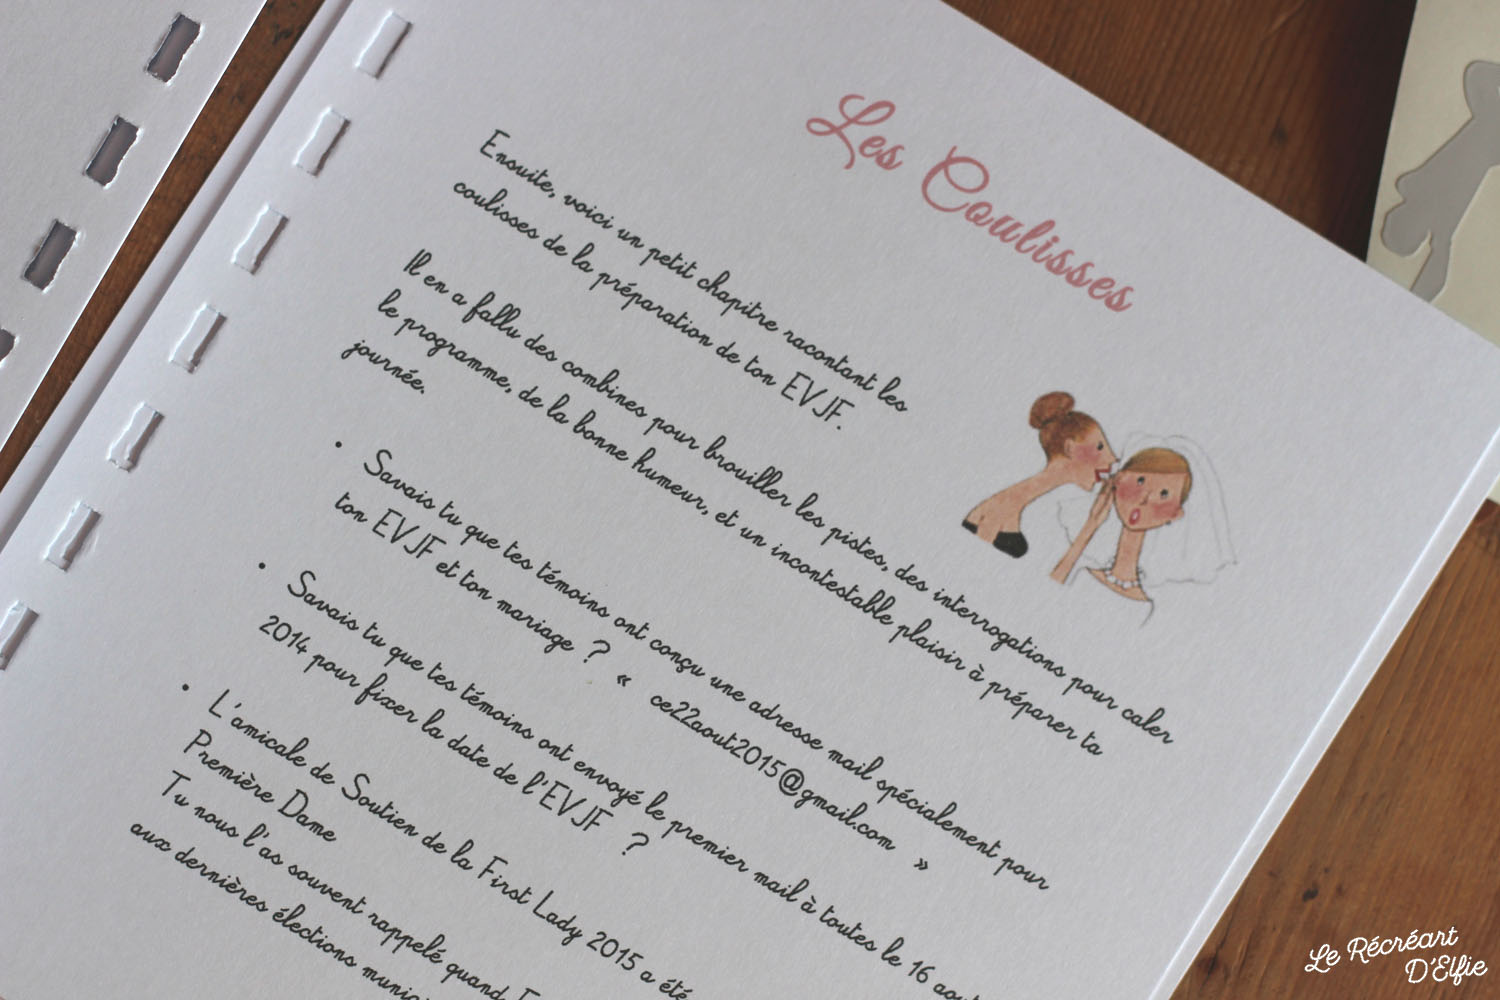 Les Coulisses
Ensuite, voici un petit chapitre racontant les
coulisses de la préparation de ton EVJF.
Il en a fallu des combines pour brouiller les pistes, des interrogations pour caler
le programme, de la bonne humeur, et un incontestable plaisir à préparer ta
journée.
• Savais tu que tes témoins ont conçu une adresse mail spécialement pour
ton EVJF et ton mariage ? « ce22aout2015@gmail.com »
• Savais tu que tes témoins ont envoyé le premier mail à toutes le 16 aout
2014 pour fixer la date de l'EVJF ?
• L'amicale de Soutien de la First Lady 2015 a été
Première Dame
Tu nous l'as souvent rappelé quand
aux dernières élections
Le Récréart
D'Elfie